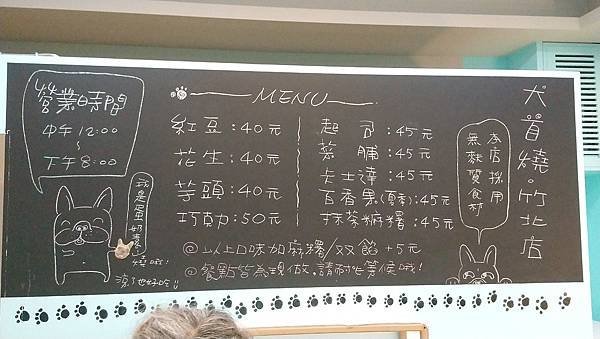 營業時間
中午12:00
~
下午8:00
MENU
紅豆:40元
花生:40元
芋頭:40元
巧克力:50元
起司:45元
菜脯:45元
卡士達:45元
百香果(夏季):45元
抹茶麻糬:45元
@以上口味加麻糬/双餡+5元
@餐點皆為現做,請耐心等候哦!
犬首燒·竹北店
本店採用
無麩質食材
我是蛋奶素
燒哦!
涼了也好吃